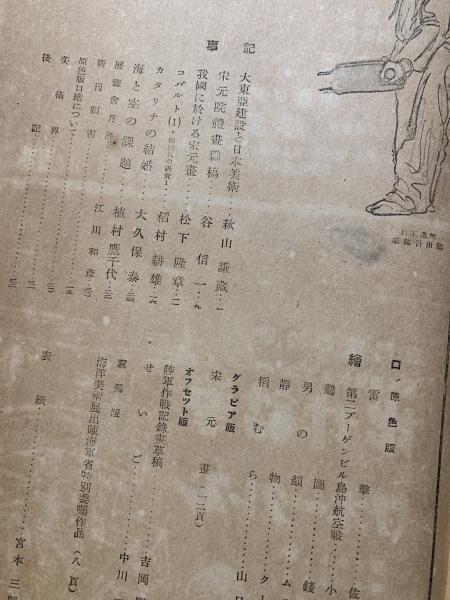 記事
大東亞建設と日本美術……秋山謙藏…一
宋元院體畫雜稿……谷信一…九
我國に於ける宋元畫……松下隆章…二
コバルト(1)
カタリナの結婚……稻村耕雄…二六
海と空の課題……大久保泰
展覽會月評……植村鷹千代
新刊圖書……江川和彦
原色版口繪について……一五
美術界……三〇
後記……三二
口繪
原色版
雷擊……佐
第二ブーゲンビル島沖航空戰……小
鷄圖……錢
男の顏……ム
靜物……クー
稻むら……山口
グラビア版
宋元畫(一二頁)
オフセット版
陸軍作戰記錄畫草稿
せいご……吉岡
中川
海洋美術展出陳海軍省特別委囑作品(八頁)
表紙……宮本三郎